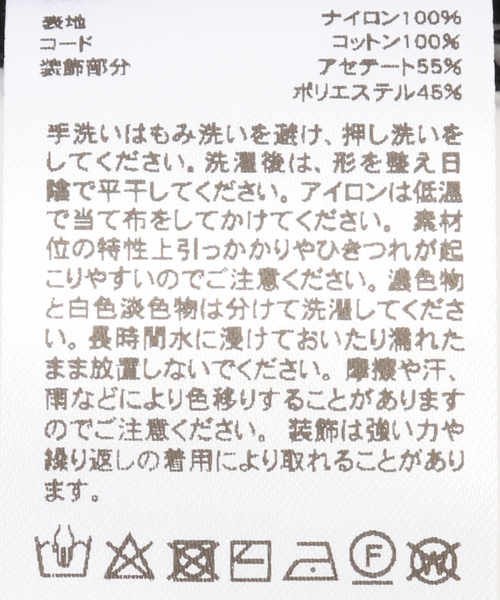 表地 ナイロン100%
コード コットン100%
装飾部分 アセテート55%
ポリエステル45%
手洗いはもみ洗いを避け、押し洗いを
してください。洗濯後は、形を整え日
陰で平干してください。アイロンは低温
で当て布をしてかけてください。 素材
位の特性上引っかかりやひきつれが起
こりやすいのでご注意ください。濃色物
と白色淡色物は分けて洗濯してくださ
い。長時間水に浸けておいたり濡れた
まま放置しないでください。 摩擦や汗、
雨などにより色移りすることがあります
のでご注意ください。 装飾は強い力や
繰り返しの着用により取れることがあり
ます。
F
W